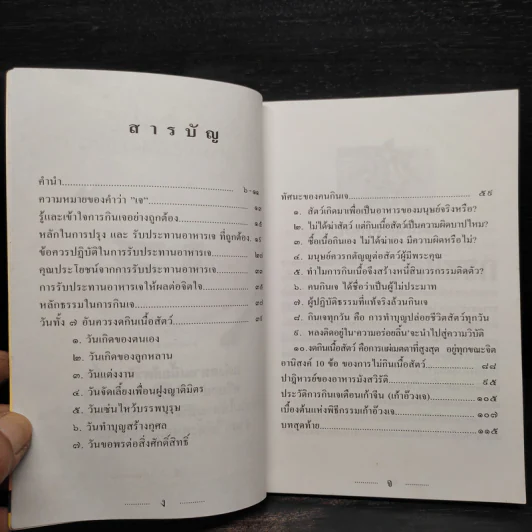 สารบัญ
คำนำ
ความหมายของคำว่า "เจ"
รู้และเข้าใจการกินเจอย่างถูกต้อง
หลักในการปรุง และ รับประทานอาหารเจ ที่ถูกต้อง
ข้อควรปฏิบัติในการรับประทานอาหารเจ
คุณประโยชน์จากการรับประทานอาหารเจ
การรับประทานอาหารเจให้ผลต่อจิตใจ
หลักธรรมในการกินเจ
วันทั้ง ๗ อันควรงดกินเนื้อสัตว์
๑. วันเกิดของตนเอง
๒. วันเกิดของลูกหลาน
๓. วันแต่งงาน
๔. วันจัดเลี้ยงเพื่อนฝูงญาติมิตร
๕. วันเซ่นไหว้บรรพบุรุษ
๖. วันทำบุญสร้างกุศล
๗. วันขอพรต่อสิ่งศักดิ์สิทธิ์
ง
ทัศนะของคนกินเจ ๕๙
๑. สัตว์เกิดมาเพื่อเป็นอาหารของมนุษย์จริงหรือ?
๒. ไม่ได้ฆ่าสัตว์ แต่กินเนื้อสัตว์เป็นความผิดบาปไหม?
๓. ซื้อเนื้อกินเอง ไม่ได้ฆ่าเอง มีความผิดหรือไม่?
๔. มนุษย์ควรกตัญญูต่อสัตว์ผู้มีพระคุณ
๕. ทำไมการกินเนื้อจึงสร้างหนี้สินเวรกรรมติดตัว?
๖. คนกินเจ ได้ชื่อว่าเป็นผู้ไม่ประมาท
๗. ผู้ปฏิบัติธรรมที่แท้จริงล้วนกินเจ
๘. กินเจทุกวัน คือ การทำบุญปล่อยชีวิตสัตว์ทุกวัน
๙. หลงติดอยู่ใน"ความอร่อยลิ้น"จะนำไปสู่ความวิบัติ
๑๐. งดกินเนื้อสัตว์ คือการแผ่เมตตาที่สูงสุด อยู่ทุกขณะจิต
อานิสงค์ 10 ข้อ ของการไม่กินเนื้อสัตว์ ๘๘
ปาฏิหารย์ของอาหารมังสวิรัติ ๙๕
ประวัติการกินเจเดือนเก้าจีน (เก้าอ๊วงเจ) ๑๐๕
เบื้องต้นแห่งพิธีกรรมเก้าอ๊วงเจ ๑๐๗
บทสุดท้าย ๑๑๕
จ